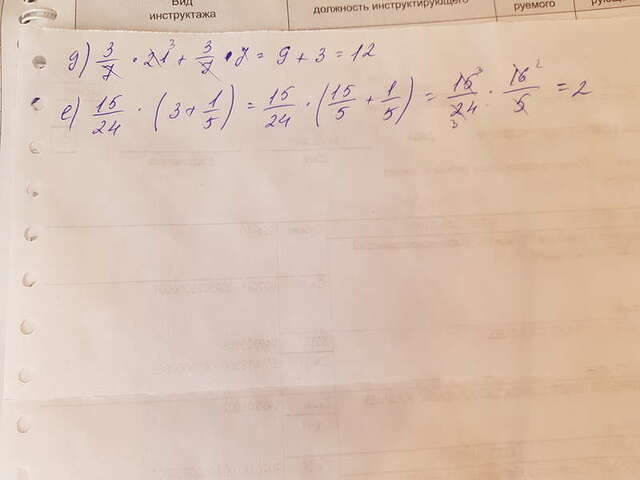 Вид инструктажа
должность инструктирующего
руемого
g) 3/7 · 21³ + 3/7 · 7 = 9 + 3 = 12
e) 15/24 · (3 + 1/5) = 15/24 · (15/5 + 1/5) = 15³/24₃ · 16²/5 = 2